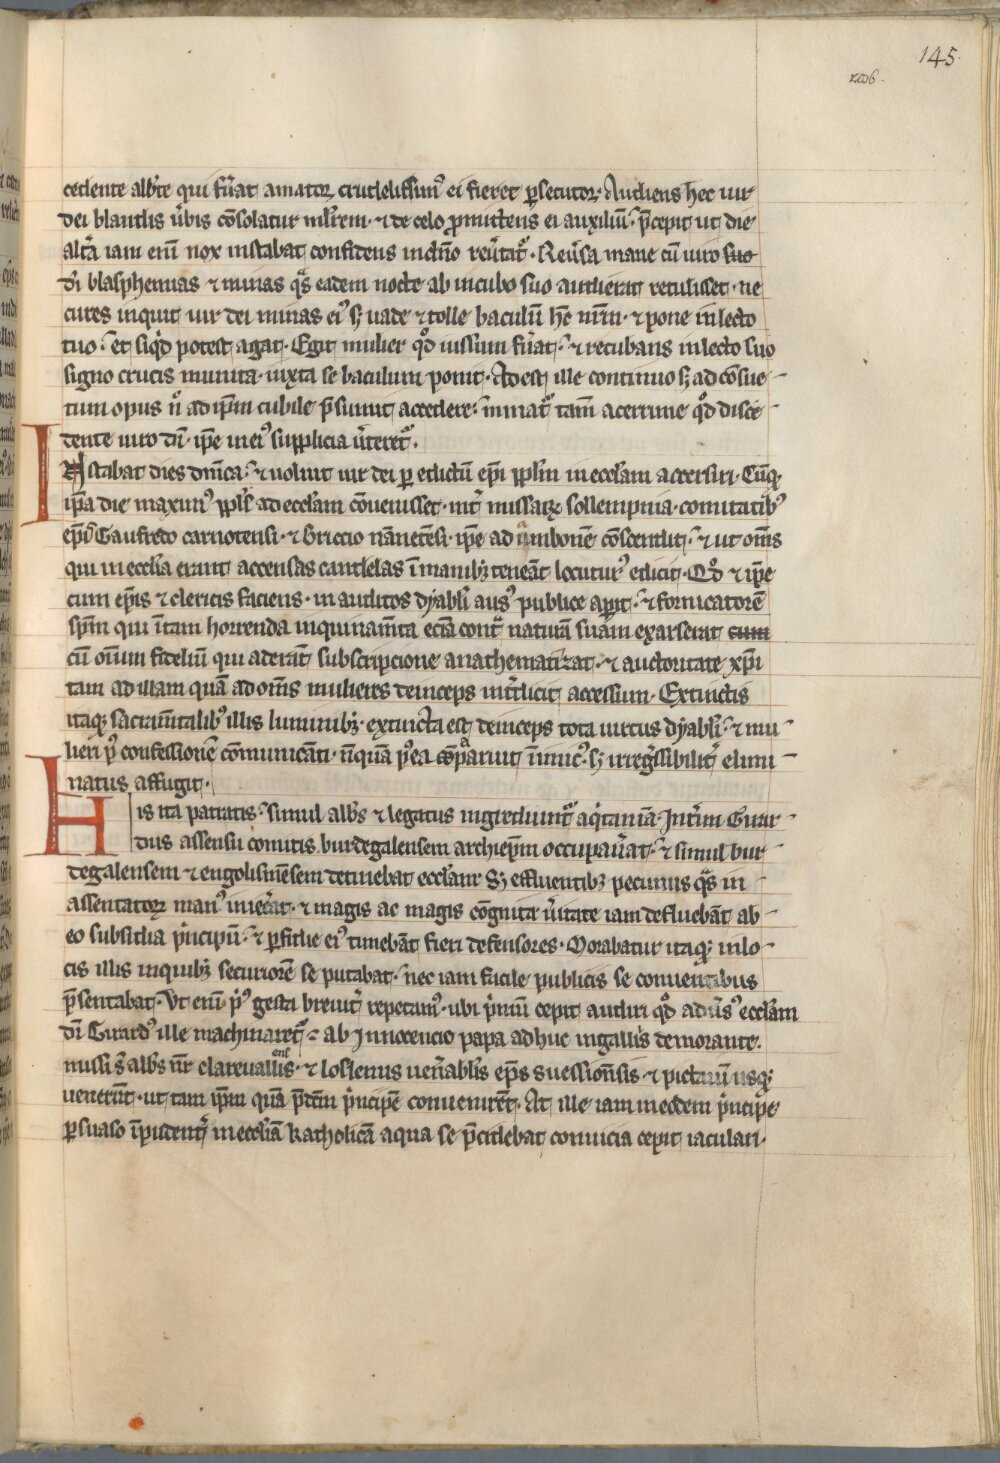 145.
cedente abb̄te qui fu̾at amator, crudelissim᷒ ei fieret p̲secutor. Audiens hec uir
dei blandis u̾bis cōsolatur ml̄rem. ⁊ de celo p̲mittens ei auxiliū. p̄cepit ut die
alt̾a iam eni̅ nox instabat confidens in dn̄o reu̾tat᷑. Reu̾sa mane cū uiro suo
dī blasphemias ⁊ minas q̾s eadem nocte ab incubo suo audierat retulisset. ne
cures inquit uir dei minas ei᷒ sꝫ uade ⁊ tolle baculū hc̄ nr̄m. ⁊ pone in lecto
tuo. et siq̾d potest agat. Egit mulier qd̾ iussum fu̾at. ⁊ recubans in lecto suo
signo crucis munita. iuxta se baculum ponit. Adest ille continuo sꝫ ad cōsue-
tum opus n̄ ad ip̄m cubile p̄sumit accedere. minat᷑ tam̄ acerrime qd̾ disce-
dente uiro dī. ip̄e in ei᷒ supplicia u̾teret᷑.
Instabat dies dn̄ica. ⁊ uoluit uir dei per edictū ep̄i ppl̄m in eccl̄am accersiri. Cūqꝫ
ip̄a die maxim᷒ ppl̄s ad eccl̄am cōuenisset. int̾ missarꝫ sollempnia. comitatib᷒
ep̄is Gaufredo carnotensi. ⁊ briccio nānetēsi. ip̄e ad ambonē cōscendit. ⁊ ut om̄s
qui in eccl̄ia erant accensas candelas ī manibꝫ teneāt locutur᷒ edicit. Qd̾ ⁊ ip̄e
cum ep̄is ⁊ clericis faciens. inauditos dyabl̄i aus᷒ publice ap̲it. ⁊ fornicatorē
sp̄m qui ī tam horrenda inquinam̄ta ecīā cont̾ naturā suam exarserat cum
cū omium fideliū qui aderāt subscripcione anathematizat. ⁊ auctoritate xp̄i
tam ad illam quā ad om̄s mulieres deinceps int̾dicit accessum. Extinctis
itaqꝫ sacram̄talib᷒ illis luminibꝫ. extincta est deinceps tota uirtus dyabl̄i. ⁊ mu-
lieri p᷒ confessionē cōmunicāti. nūquā p᷒ea cōparuit īimic᷒. sꝫ irreg̾ssibilit̾ elimi-
natus affugit.
His ita patratis. simul abb̄s ⁊ legatus ingrediunt᷑ aq̾taniā. Int̾im Girar-
dus assensu comitis burdegalensem archiep̄m occupau̾at. ⁊ simul bur-
degalensem ⁊ engolismēsem detinebat eccl̄am. Sꝫ effluentibꝫ pecuniis q̾s in
assentatorꝫ man᷒ iniec̾at. ⁊ magis ac magis cōgnita u̾itate iam defluebāt ab
eo subsidia p̾ncipū. ⁊ p̲fidie ei᷒ timebāt fieri defensores. Morabatur itaqꝫ in lo-
cis illis in quibꝫ securiorē se putabat. nec iam facile publicis se conuentibus
p̄sentabat. Vt eni̅ p᷒ gesta breuit̾ repetam᷒. ubi p̾mū cepit audiri qd̾ adu̾s᷒ eccl̄am
dī Girard᷒ ille machinaret᷑. ab Innocencio papa adhuc in galliis demorante.
missi s̄ abb̄s nr̄ clareuallēsis. ⁊ ioslenus uen̾abl̄is ep̄s suessionēsis ⁊ pictauī usqꝫ
uenerūt. ut tam ip̄m quā p̄dc̄m p̾ncipē conuenirēt. At ille iam in eodem p̾ncipe
p̲suaso īpudent̾ in eccl̄iā katholicā a qua se p̄cidebat conuicia cepit iaculari.